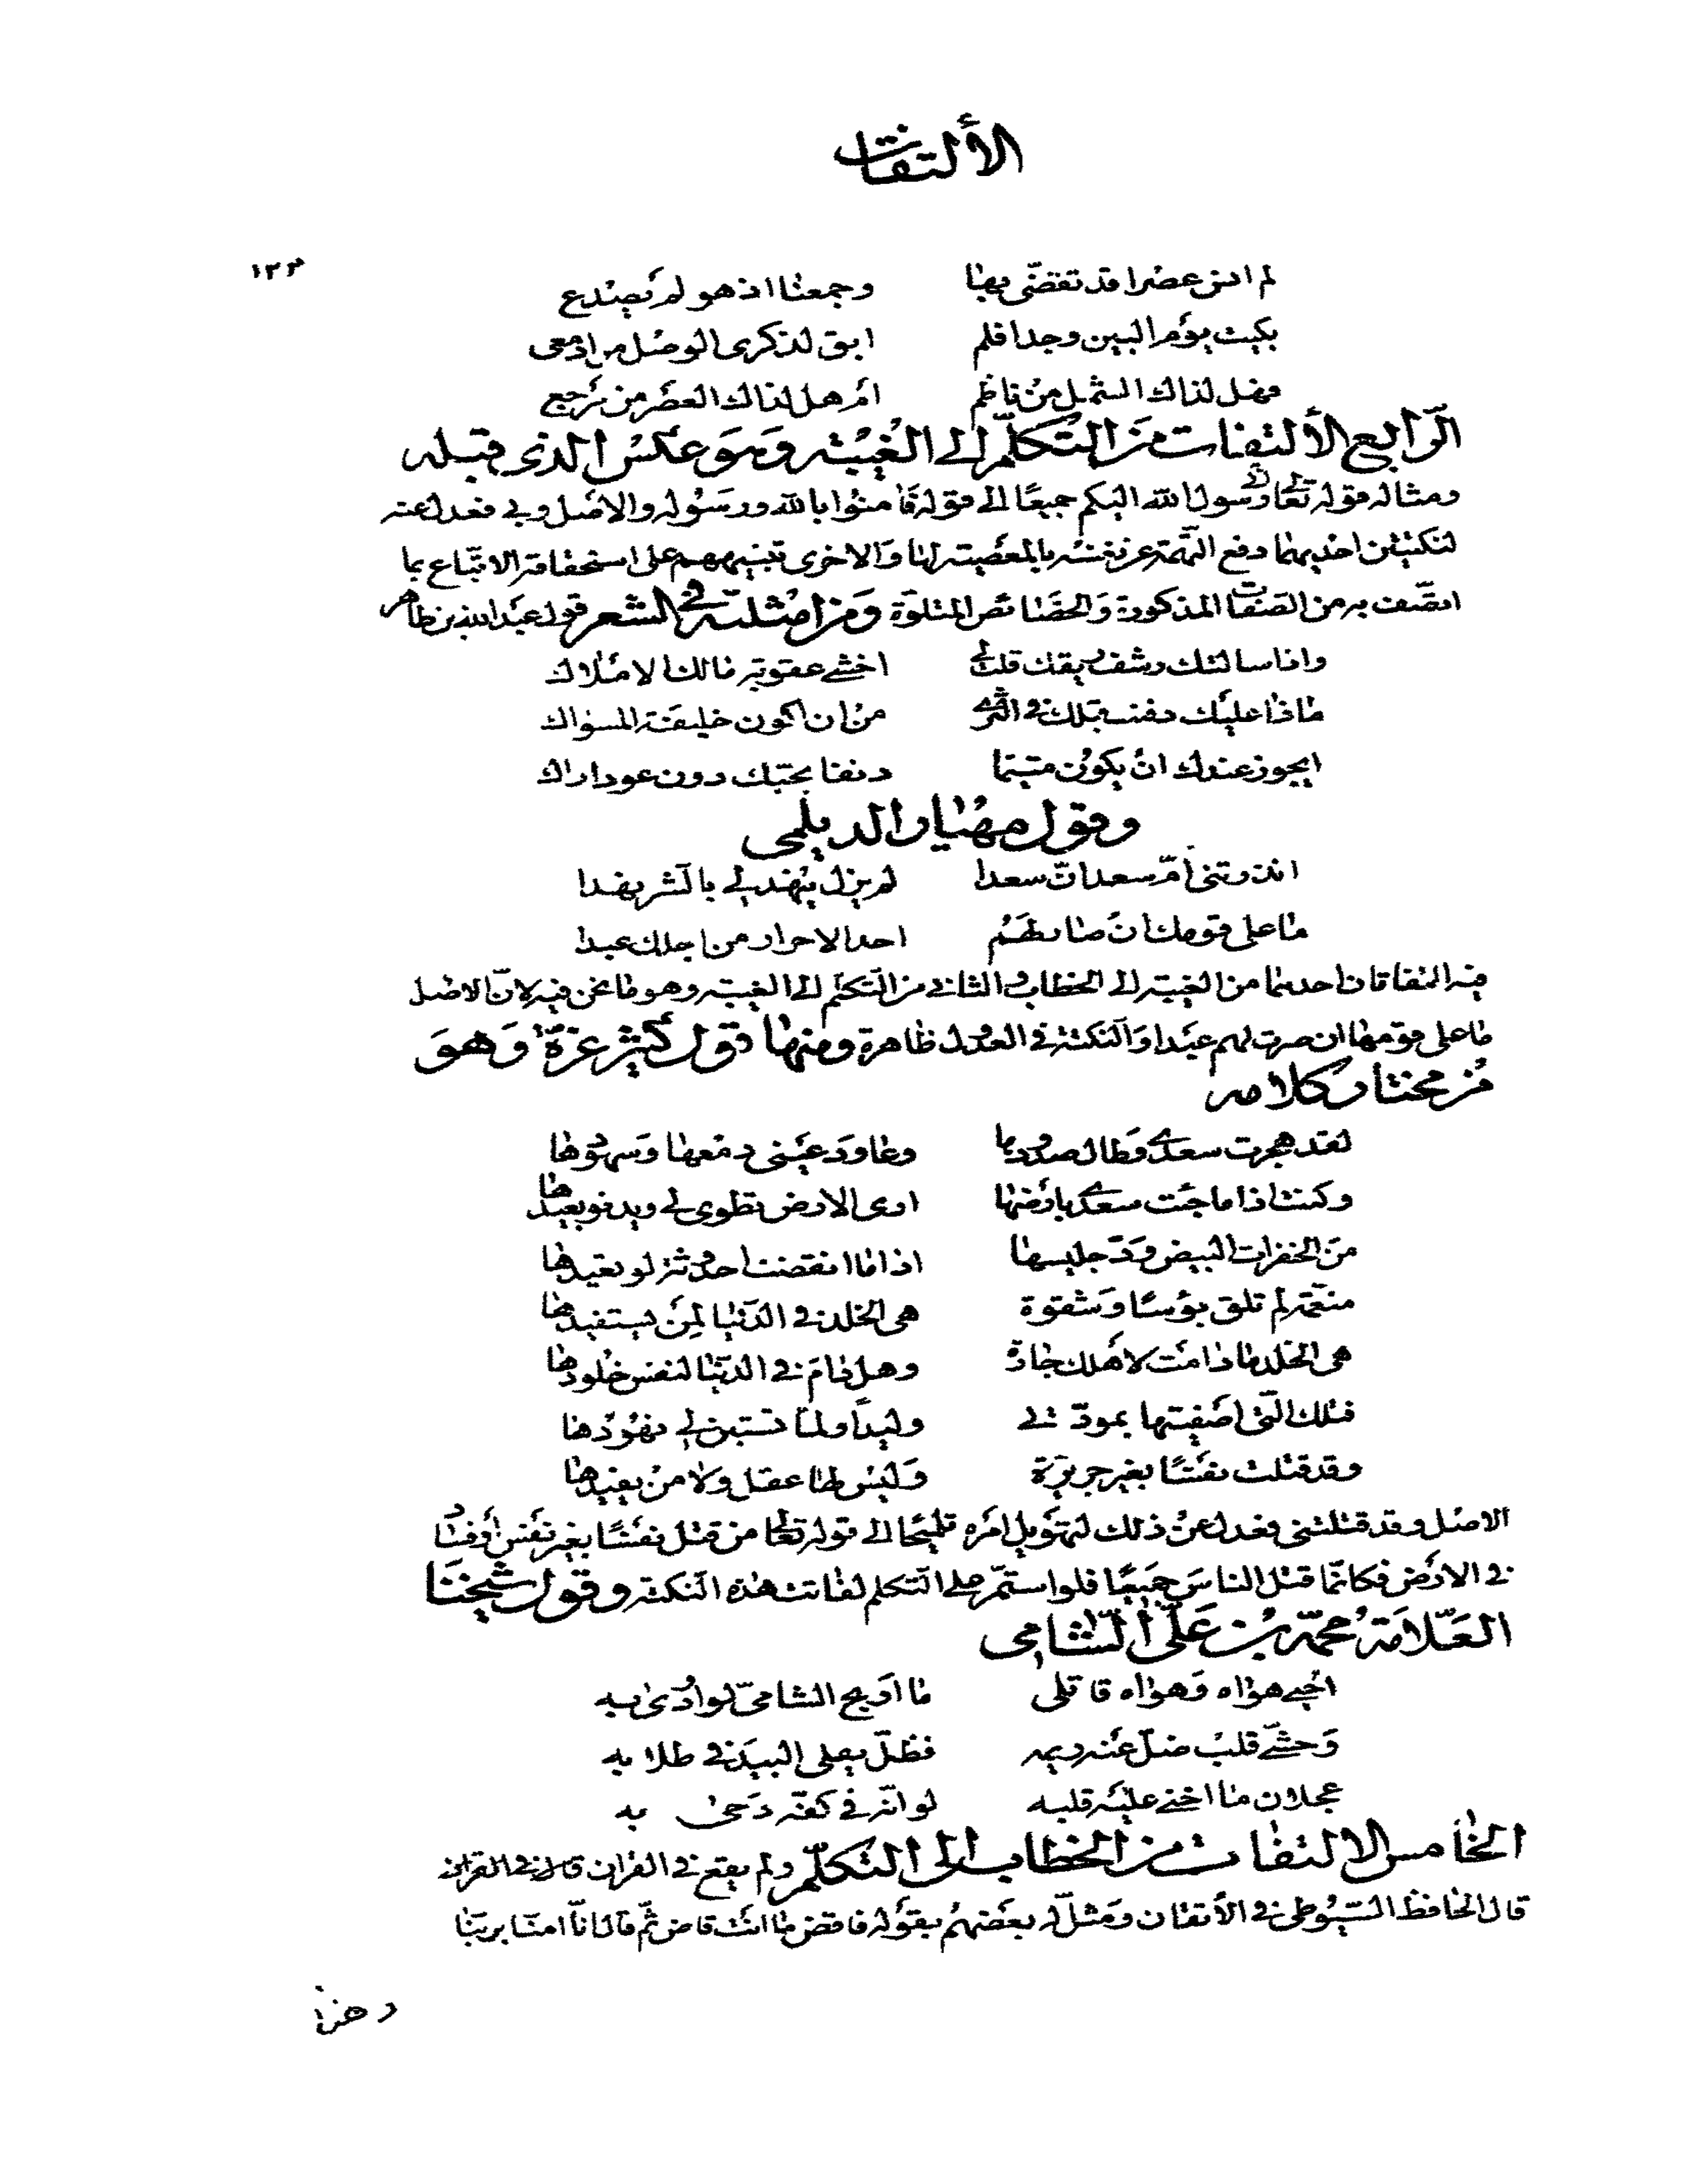 الألتفات
١٣٣
لم انس عصرا قد تقضّى بها وجمعنا اذ هو لم يصدع
بكيت يوم البين وجدا فلم ابق لذكرى الوصل من ادمعى
فهل لذاك الشمل من ناظم ام هل لذاك العصر من مرجع
الرّابع الألتفات من التكلّم الى الغيبة وهو عكس الذى قبله
ومثاله قوله تعالى انّى رسول الله اليكم جميعا الى قوله فامنوا بالله ورسوله والاصل وبى فعدل عنه
لنكتتين احديهما دفع التّهمة عن نفسه بالعصبية لها والاخرى تنبيههم على استحقاقه الاتّباع بما
اتصّف به من الصّفات المذكورة والخصائص المتلوّة ومن امثلته فى الشعر قول عبد الله بن طاهر
واذا سالتك رشف ريقك قلت لى اخشى عقوبة مالك الاملاك
ماذا عليك دفنت قبلك فى الثرى من ان اكون خليفة المسواك
ايجوز عندك ان يكون متيّما دنفا بحبّك دون عود اراك
وقول مهيار الديلمى
انذرتنى امّ سعد انّ سعدا لم يزل ينهد لى بالشرّ نهدا
ما على قومك ان صار لهم احد الاحرار من اجلك عبدا
فيه التفاتان احدهما من الغيبة الى الخطاب والثانى من التّكلم الى الغيبة وهو ما نحن فيه لانّ الاصل
ما على قومها ان صرت لهم عبدا والنكتة فى العدول ظاهرة ومنها قول كثير عزة وهو
من مختار كلامه
لقد هجرت سعدى وطال صدودها وعاود عينى دمعها وسهودها
وكنت اذا ما جئت سعدى بارضها ارى الارض تطوى لى ويدنو بعيدها
من الخفرات البيض ودّ جليسها اذا ما انقضت احدوثة لو تعيدها
منعّمة لم تلق بؤسا وشقوة هى الخلد فى الدّنيا لمن يستفيدها
هى الخلد ما دامت لاهلك جارة وهل دام فى الدّنيا لنفس خلودها
فتلك الّتى اصفيتها بمودّتى وليدا ولمّا تستبن لى نهودها
وقد قتلت نفسا بغير جريرة وليس لها عقل ولا من يقيدها
الاصل وقد قتلتنى فعدل عن ذلك لتهويل امره تلميحا الى قوله تعالى من قتل نفسا بغير نفس او فساد
فى الارض فكانّما قتل الناس جميعا فلو استمرّ على التّكلم لفاتت هذه النكتة وقول شيخنا
العلّامة محمّد بن علىّ الشّامى
اخفى هواه وهواه قاتلى ما اربح الشامىّ لو اودى به
وحشىّ قلب ضلّ عنه ريمه فظلّ يعلى البيد فى طلابه
عجلان ما اخنى عليه قلبه لو انّه فى كفّه رحى به
الخامس الالتفات من الخطاب الى التكلّم ولم يقع فى القران
قال الحافظ السّيوطى فى الأتقان ومثّل له بعضهم بقوله فاقض ما انت قاض ثمّ قال انّا امنّا بربّنا
وهذا